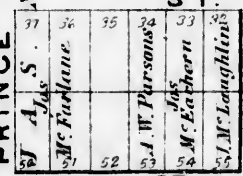 PRINCE
37 36 35 34 33 32
J. A. S.
Jas
McFarlane
A. W. Parsons
Jas
McEachern
J. McLaughlin
50 51 52 53 54 55